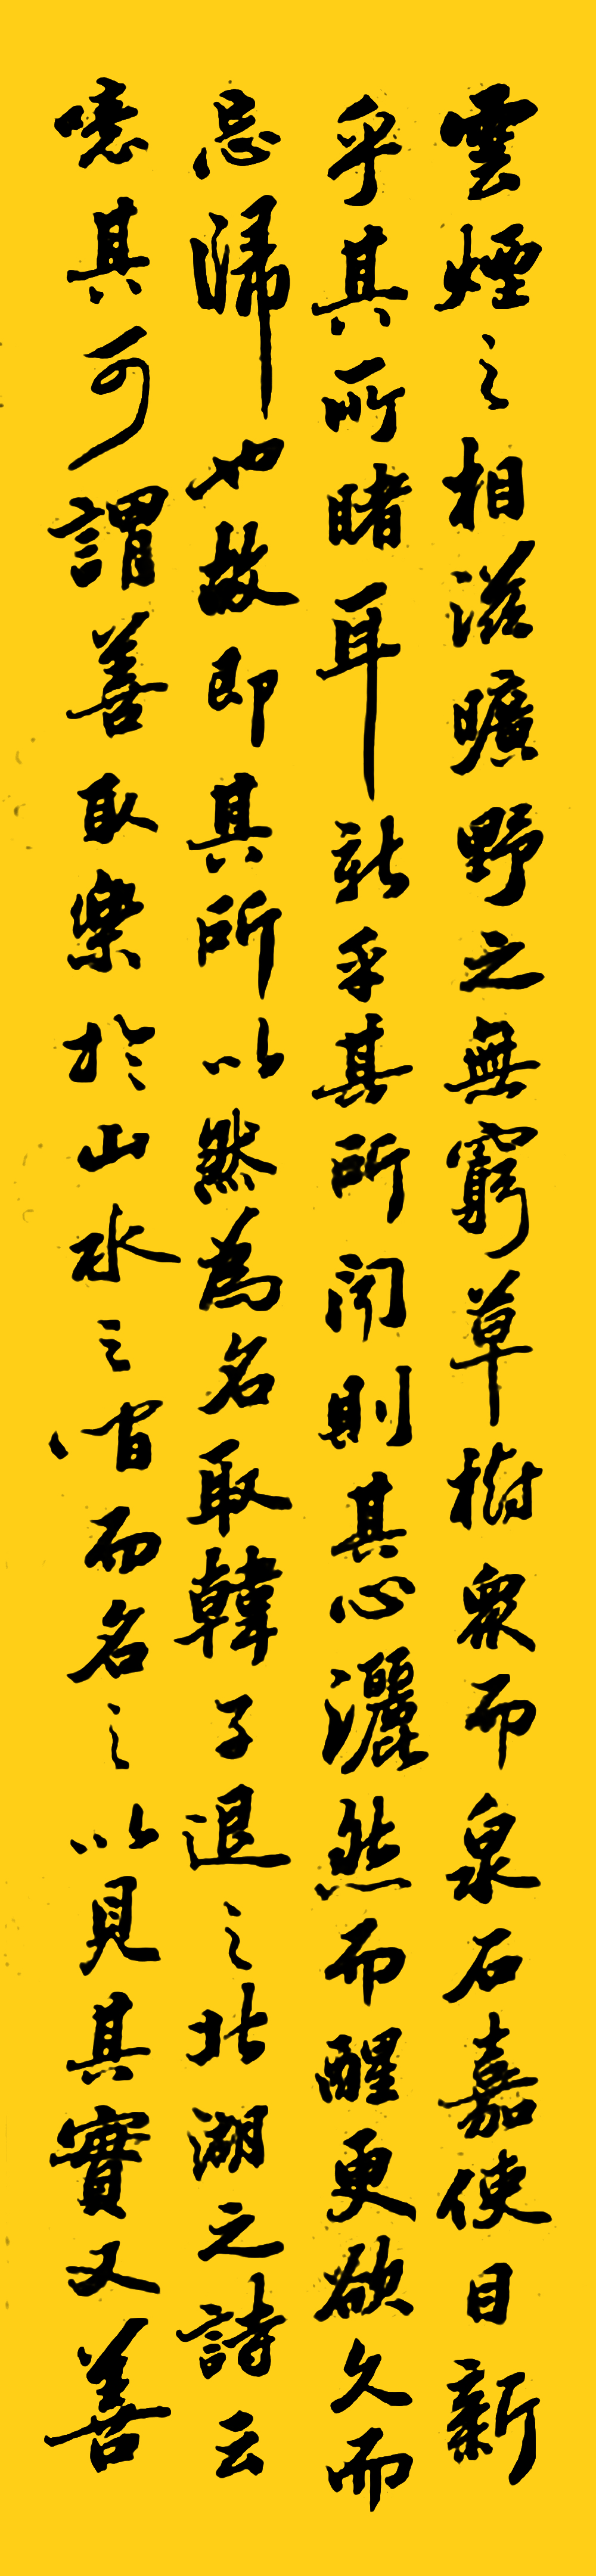 雲煙之相滋曠野之無窮草樹衆而泉石嘉使目新
乎其所睹耳新乎其所聞則其心灑然而醒更欲久而
忘歸也故即其所以然為名取韓子退之北湖之詩云
噫其可謂善取樂於山水之間而名之以見其實又善